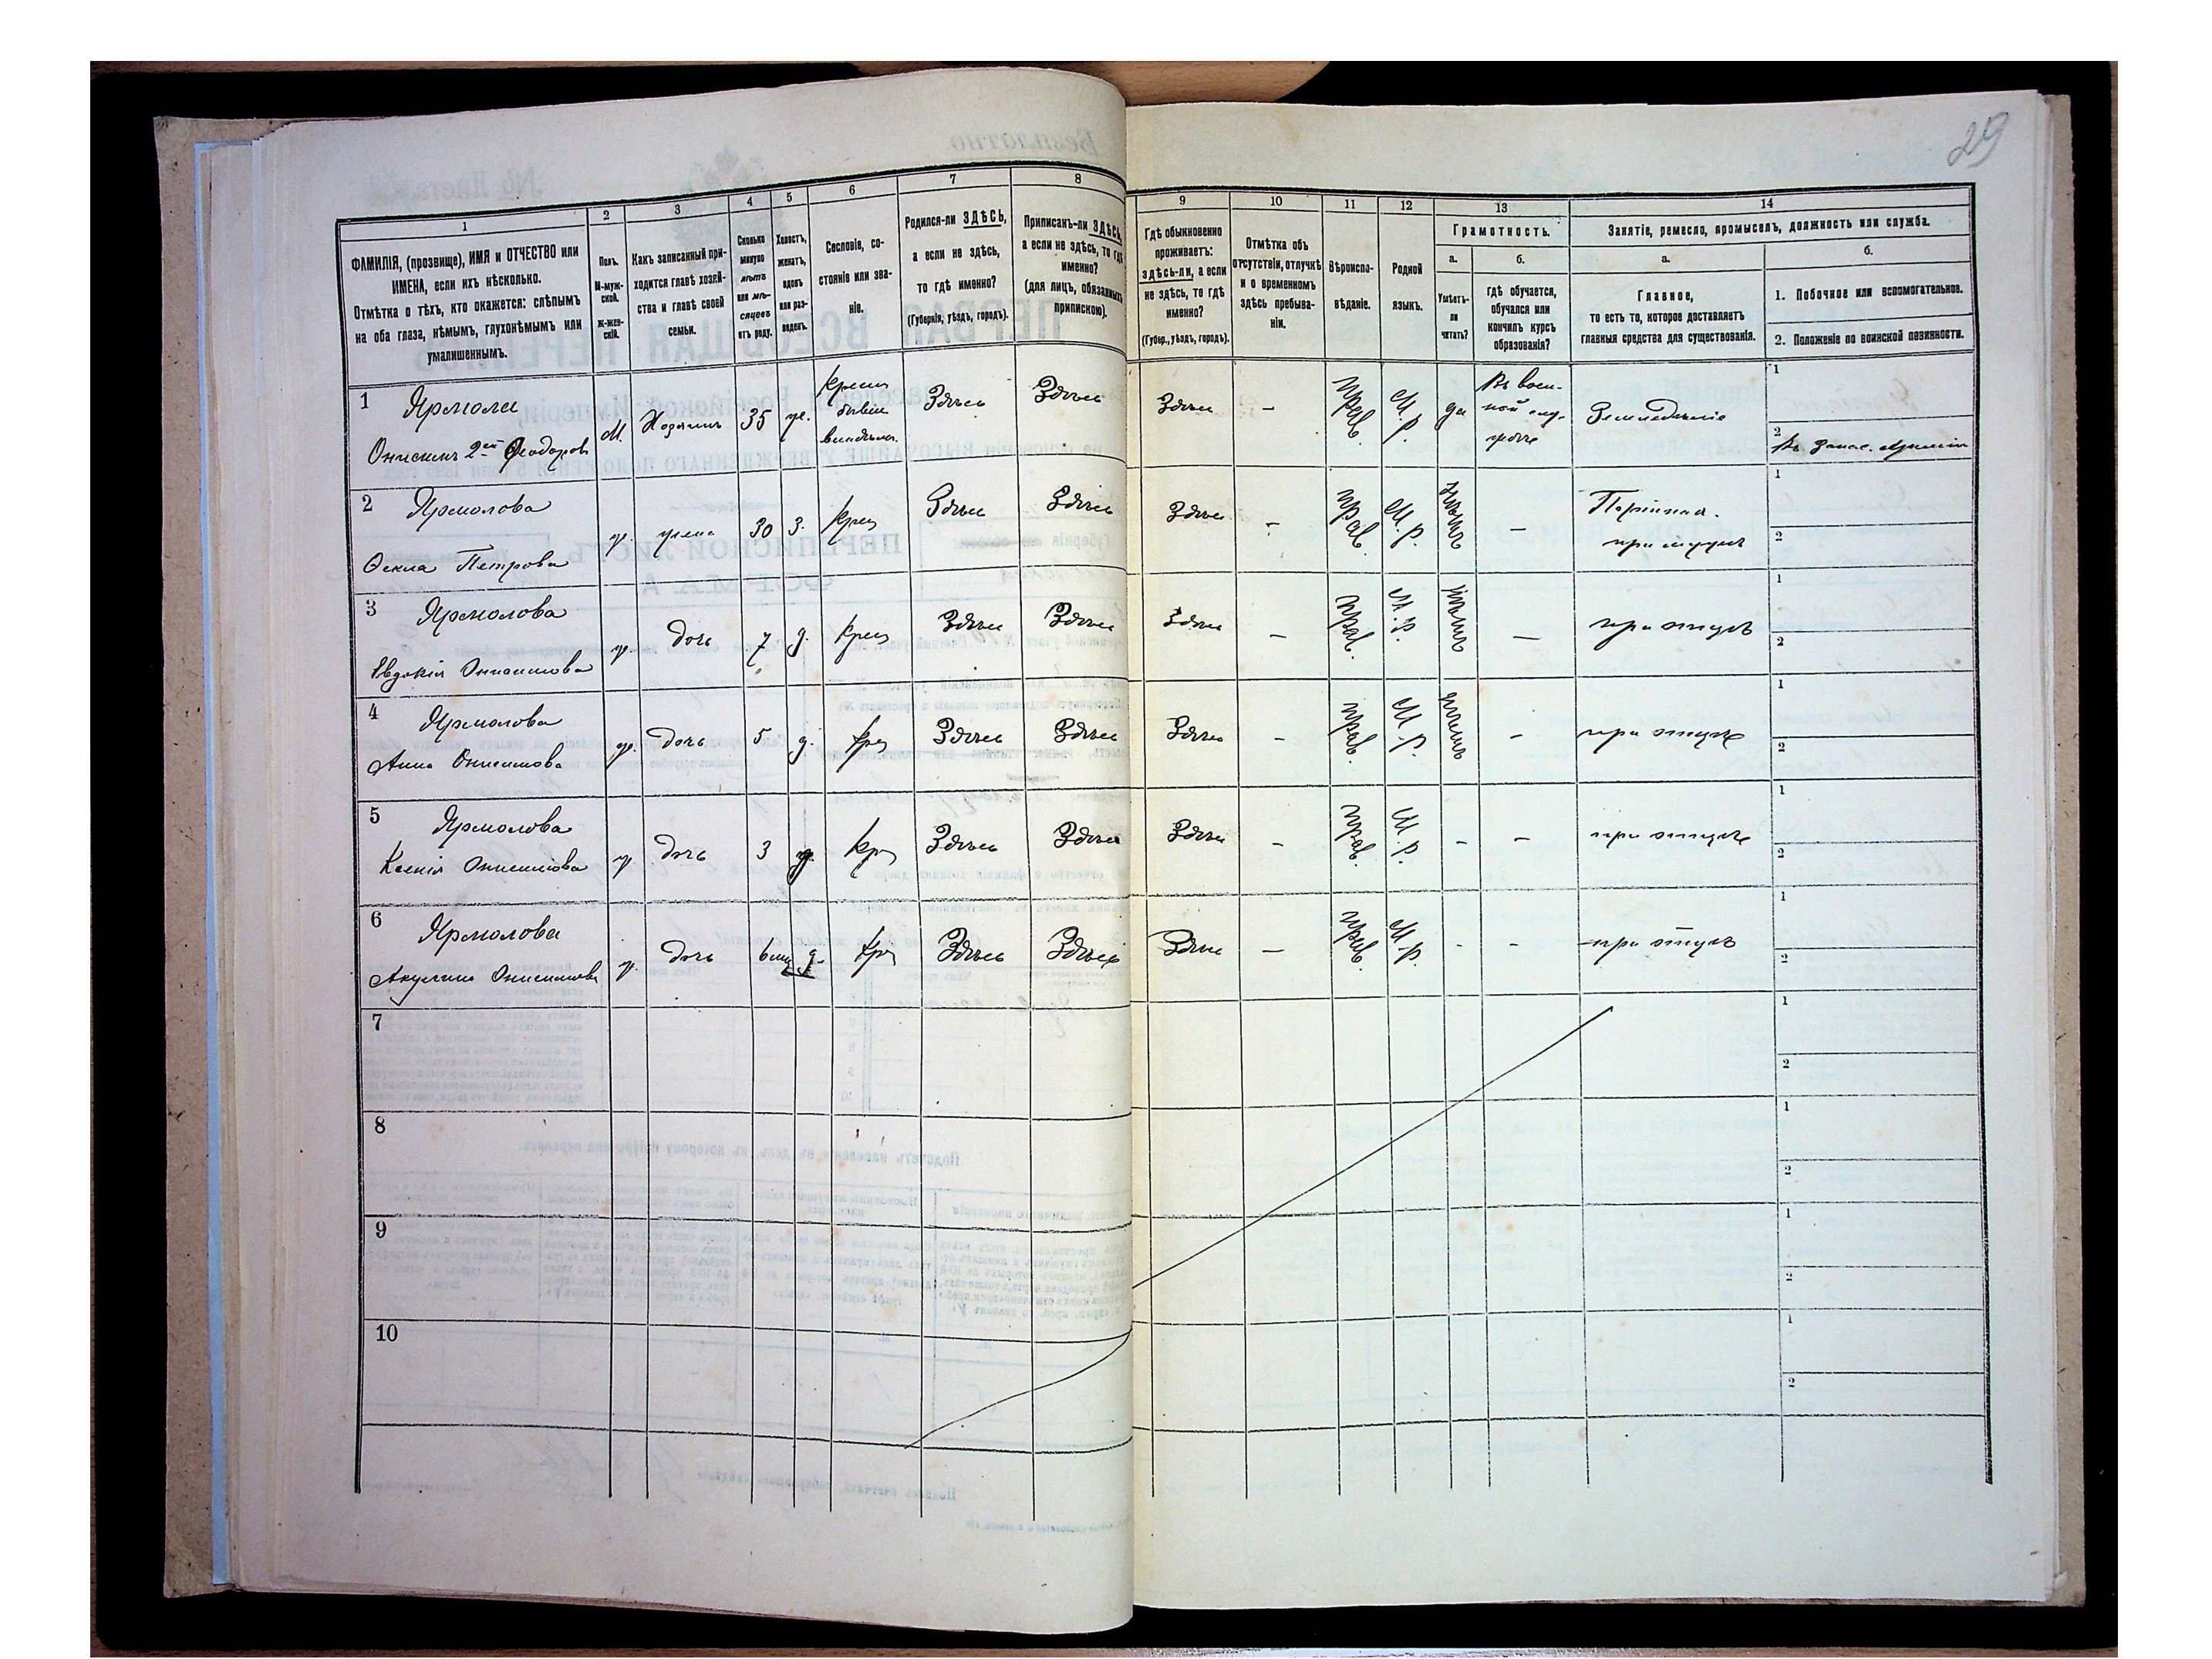 29
1
2
3
4
5
6
7
8
9
10
11
12
13
14
ФАМИЛІЯ, (прозвище), ИМЯ и ОТЧЕСТВО или
ИМЕНА, если ихъ нѣсколько.
Отмѣтка о тѣхъ, кто окажется: слѣпымъ
на оба глаза, нѣмымъ, глухонѣмымъ или
умалишеннымъ.
Полъ.
М-муж-
ской.
Ж-жен-
скій.
Какъ записанный при-
ходится главѣ хозяй-
ства и главѣ своей
семьи.
Сколько
минуло
лѣтъ
или мѣ-
сяцевъ
отъ роду.
Холостъ,
женатъ,
вдовъ
или раз-
веденъ.
Сословіе, со-
стояніе или зва-
ніе.
Родился-ли ЗДѢСЬ,
а если не здѣсь,
то гдѣ именно?
(Губернія, уѣздъ, городъ).
Приписанъ-ли ЗДѢСЬ,
а если не здѣсь, то гдѣ
именно?
(для лицъ, обязанныхъ
припискою).
Гдѣ обыкновенно
проживаетъ:
здѣсь-ли, а если
не здѣсь, то гдѣ
именно?
(Губер., уѣздъ, городъ).
Отмѣтка объ
отсутствіи, отлучкѣ
и о временномъ
здѣсь пребыва-
ніи.
Вѣроиспо-
вѣданіе.
Родной
языкъ.
Грамотность.
а.
Умѣетъ-
ли
читать?
б.
гдѣ обучается,
обучался или
кончилъ курсъ
образованія?
Занятіе, ремесло, промыселъ, должность или служба.
а.
Главное,
то есть то, которое доставляетъ
главныя средства для существованія.
б.
1. Побочное или вспомогательное.
2. Положеніе по воинской повинности.
1
Ярмола
Онисимъ 2ой Ѳеодоровъ
М.
Хозяинъ
35
ж.
Крест.
бывш.
владѣльч.
Здѣсь
Здѣсь
Здѣсь
–
прав.
М.р.
да
Въ воен-
ной слу-
жбѣ
Земледѣліе
1
2
Въ запас. арміи
2
Ярмолова
Ѳекла Петрова
ж.
жена
30
З.
Крест
Здѣсь
Здѣсь
Здѣсь
–
прав.
М.р.
–
при мужѣ
1
2
3
Ярмолова
Евдокія Онисимова
ж.
дочь
7
д.
Крест
Здѣсь
Здѣсь
Здѣсь
–
прав.
М.р.
–
при отцѣ
1
2
4
Ярмолова
Анна Онисимова
ж.
дочь
5
д.
Кре
Здѣсь
Здѣсь
Здѣсь
–
прав.
М.р.
–
при отцѣ
1
2
5
Ярмолова
Ксенія Онисимова
ж
дочь
3
д.
Кр
Здѣсь
Здѣсь
Здѣсь
–
прав.
М.р.
–
–
при отцѣ
1
2
6
Ярмолова
Акулина Онисимова
ж.
дочь
6 мц
д.
Кр
Здѣсь
Здѣсь
Здѣсь
–
прав.
М.р.
-
-
при отцѣ
1
2
7
1
2
8
1
2
9
1
2
10
1
2